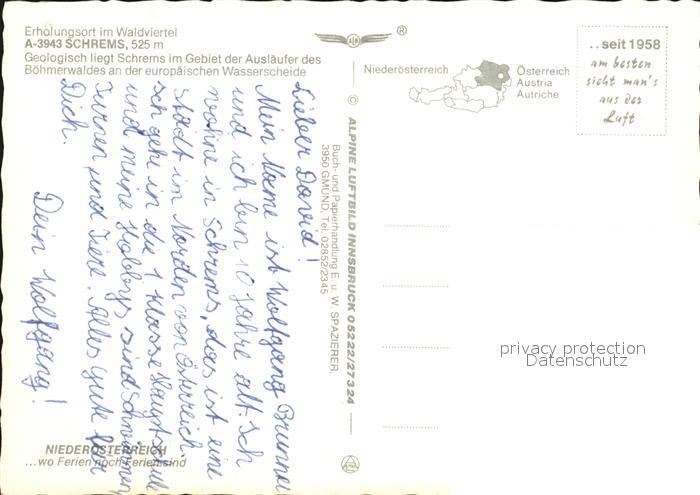 Erholungsort im Waldviertel
A-3943 SCHREMS, 525 m
Geologisch liegt Schrems im Gebiet der Ausläufer des
Böhmerwaldes an der europäischen Wasserscheide
®
Niederösterreich
Österreich
Austria
Autriche
..seit 1958
am besten
sieht man's
aus der
Luft
Lieber David!
Mein Name ist Wolfgang Brunner
und ich bin 10 Jahre alt. Ich
wohne in Schrems, das ist eine
Stadt im Norden von Österreich.
Ich gehe in die 1 Klasse Hauptschule
und meine Hobbys sind schwimmen,
Turnen und Tiere. Alles gute für
Dich.
Dein Wolfgang!
© ALPINE LUFTBILD INNSBRUCK 05222/27324
Buch- und Papierhandlung E. u. W. SPAZIERER,
3950 GMÜND, Tel. 02852/2345
privacy protection
Datenschutz
NIEDERÖSTERREICH
...wo Ferien noch Ferien sind